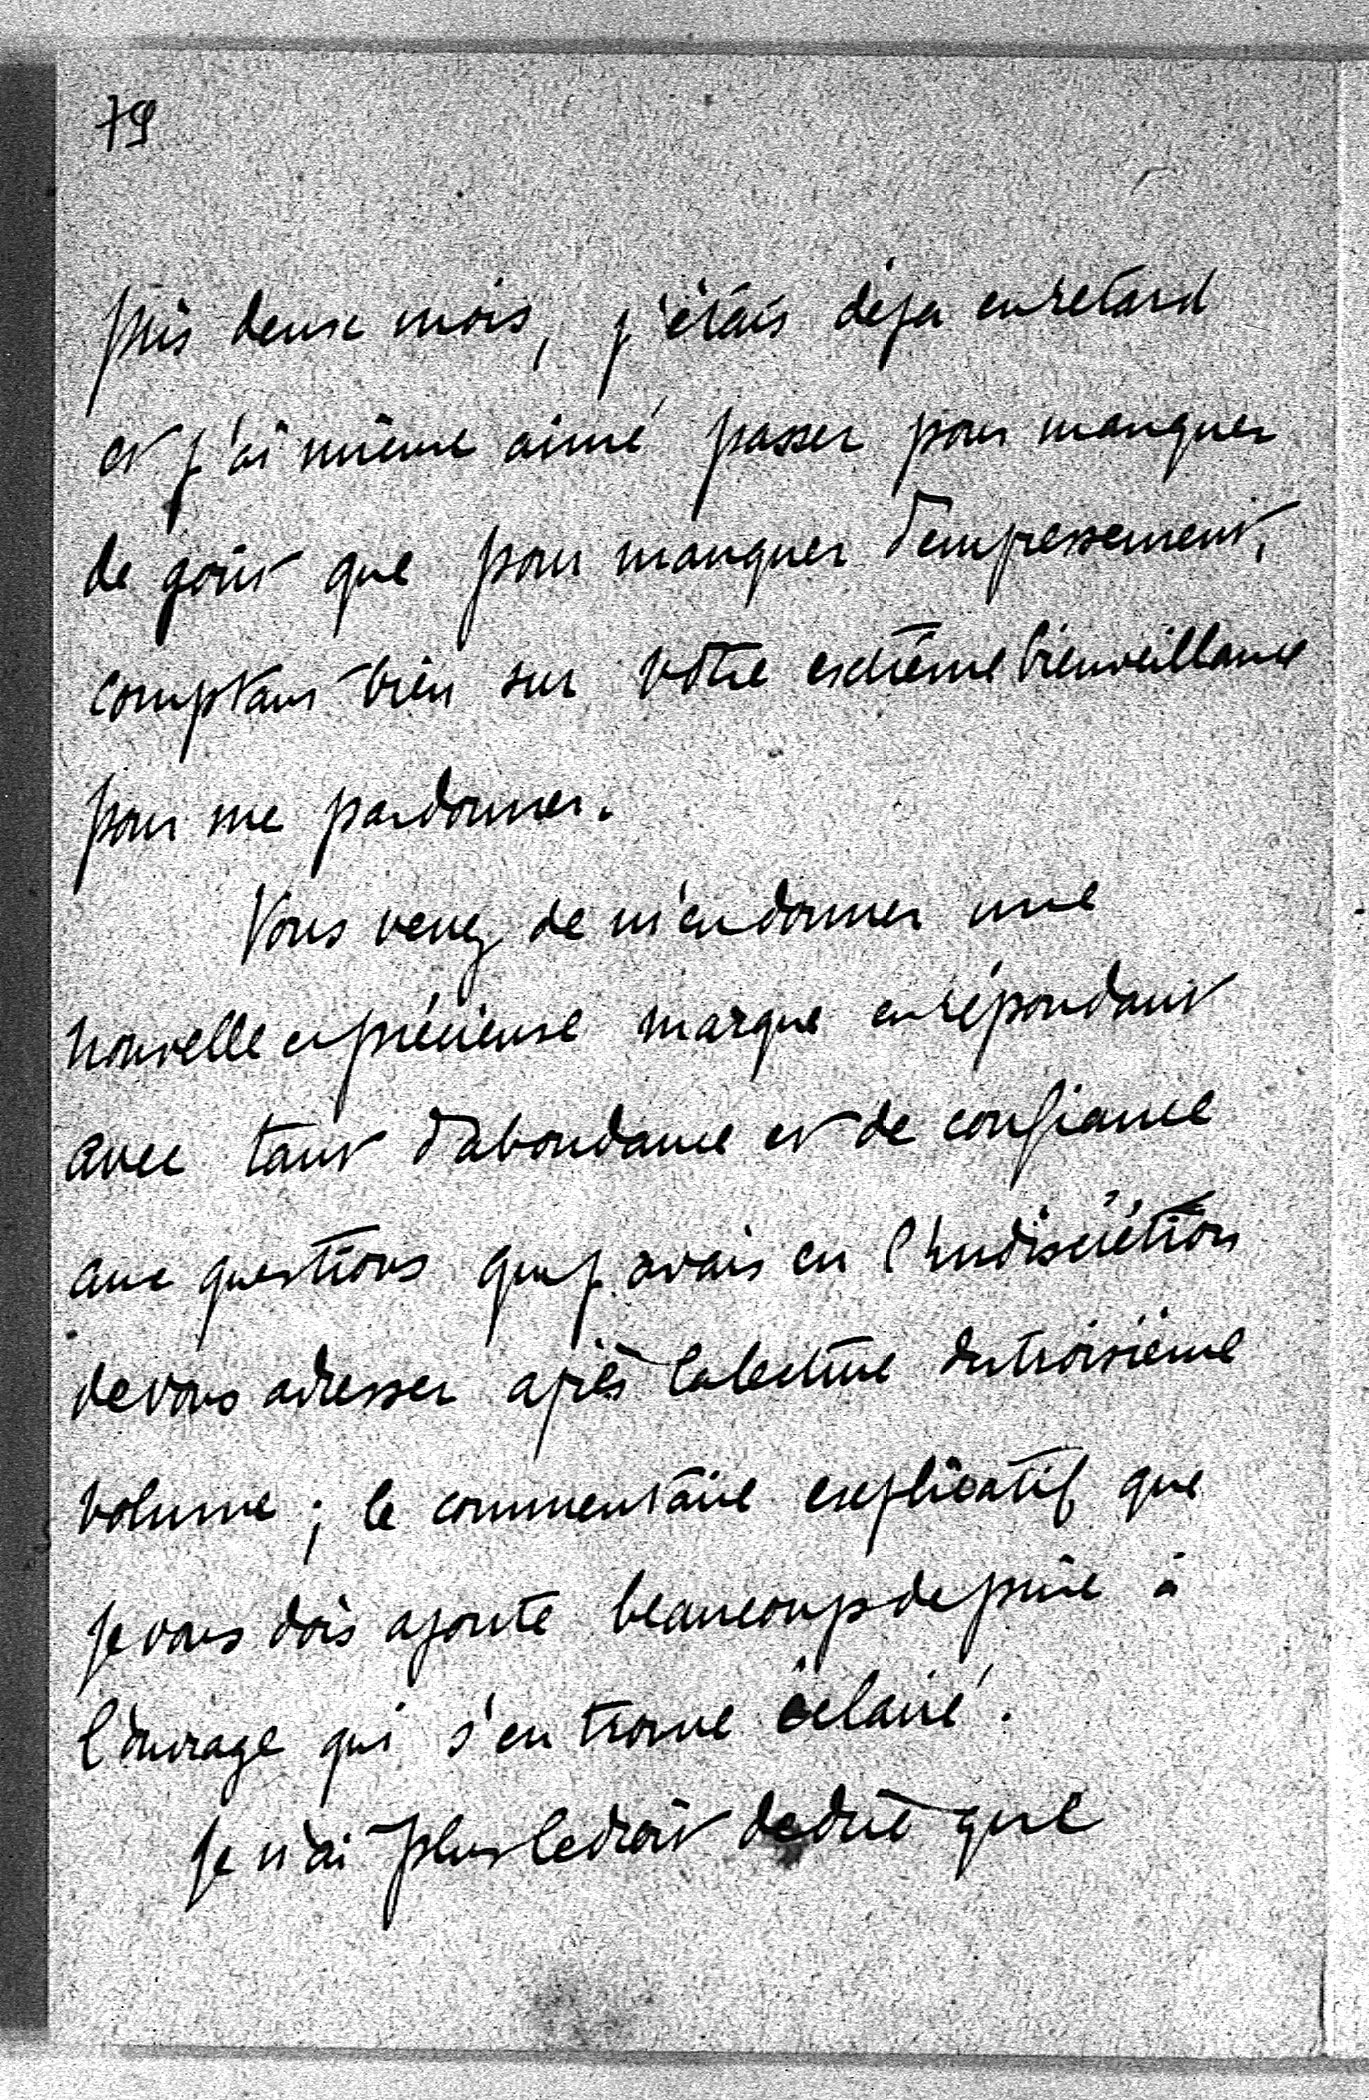 79
puis deux mois, j'étais déja en retard
et j'ai mieux aimé passer pour manquer
de goût que pour manquer d'empressement,
comptant bien sur votre extrême bienveillance
pour me pardonner.
Vous venez de m'en donner une
nouvelle et précieuse marque en répondant
avec tant d'abondance et de confiance
aux questions que j'avais eu l'indiscrétion
de vous adresser après la lecture du troisième
volume ; le commentaire explicatif que
je vous dois ajoute beaucoup de prix à
l'ouvrage qui s'en trouve éclairé.
Je n'ai plus le droit de dire que